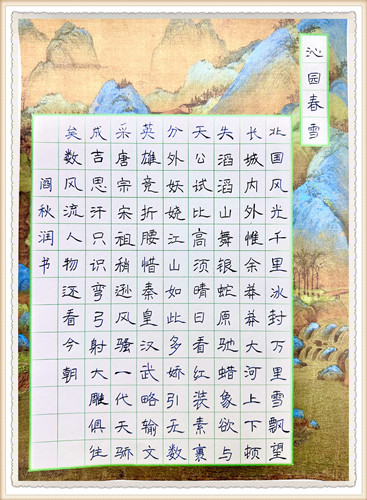 沁园春雪
北国风光千里冰封万里雪飘望
长城内外惟余莽莽大河上下顿
失滔滔山舞银蛇原驰蜡象欲与
天公试比高须晴日看红装素裹
分外妖娆江山如此多娇引无数
英雄竞折腰惜秦皇汉武略输文
采唐宗宋祖稍逊风骚一代天骄
成吉思汗只识弯弓射大雕俱往
矣数风流人物还看今朝
阎秋润书